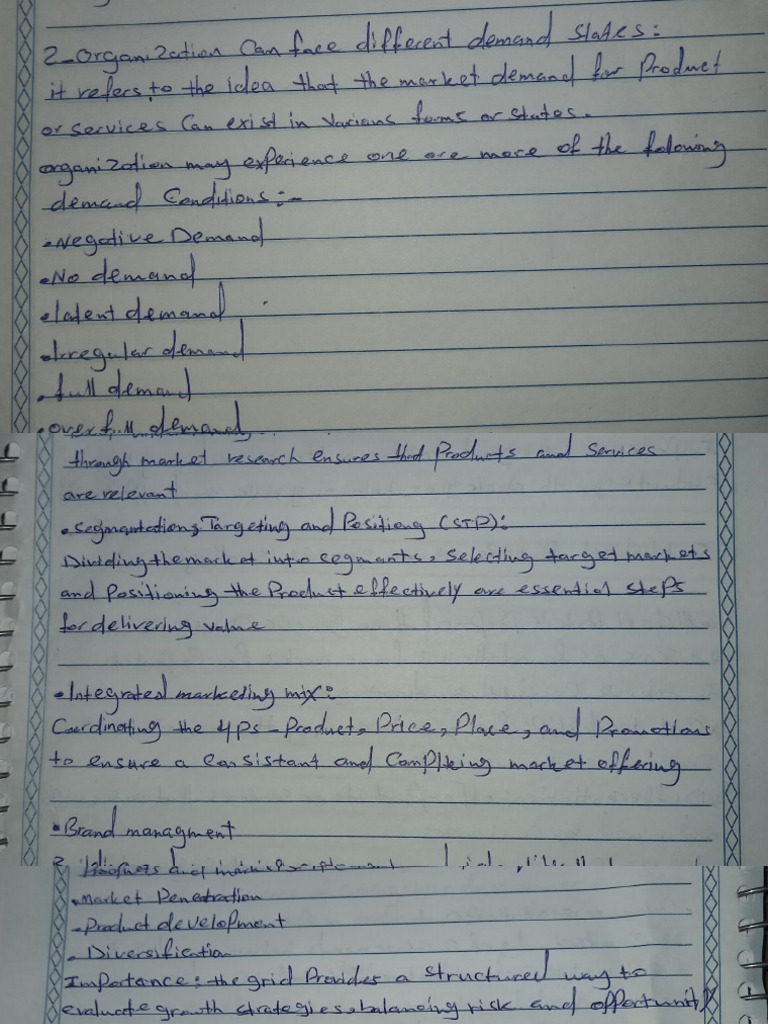 2-Organization Can face different demand states:
it refers to the idea that the market demand for Product
or services Can exist in Various forms or states.
organization may experience one ore more of the following
demand Conditions:-
.Negative Demand
.No demand
.latent demand
.Irregular demand
.full demand
.overfull demand
through market research ensures that Products and services
are relevant
.Segmantation, Targeting and Positiong (STP):
Dividing the market into segments, selecting target markets
and Positioning the Product effectively are essential steps
for delivering value
.Integrated marketing mix:
Coordinating the 4Ps-Product, Price, Place, and Promotions
to ensure a Consistant and Complking market offering
.Brand managment
.Market Penetration
.Product development
. Diversification
Importance: the grid Provides a structured way to
evaluate growth strategies, balancing risk and opportunity